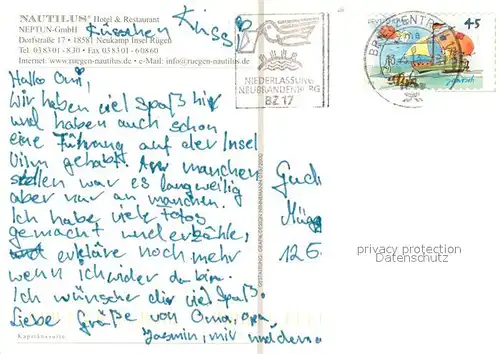 NAUTILUS® Hotel & Restaurant
NEPTUN-GmbH
Dorfstraße 17 • 18581 Neukamp Insel Rügen
Tel 038301 - 830 • Fax 038301 - 60860
Internet: www.ruegen-nautilus.de • e-Mail: info@ruegen-nautilus.de
Küsschen Kuss
Hallo Omi,
Wir haben viel Spaß hier
und haben auch schon
eine Führung auf der Insel
Vilm gehabt. An manchen
stellen war es langweilig
aber nur an manchen.
Ich habe viele Fotos
gemacht und erzähle,
und erkläre noch mehr
wenn ich wider da bin.
Ich wünsche dir viel Spaß.
Liebe Grüße von Oma, Opa,
Jasmin, mir und
Kapitänssuite
NIEDERLASSUNG
NEUBRANDENBURG
BZ 17
BRIEFZENTRUM
45
Gud
Müg
12 5
privacy protection
Datenschutz